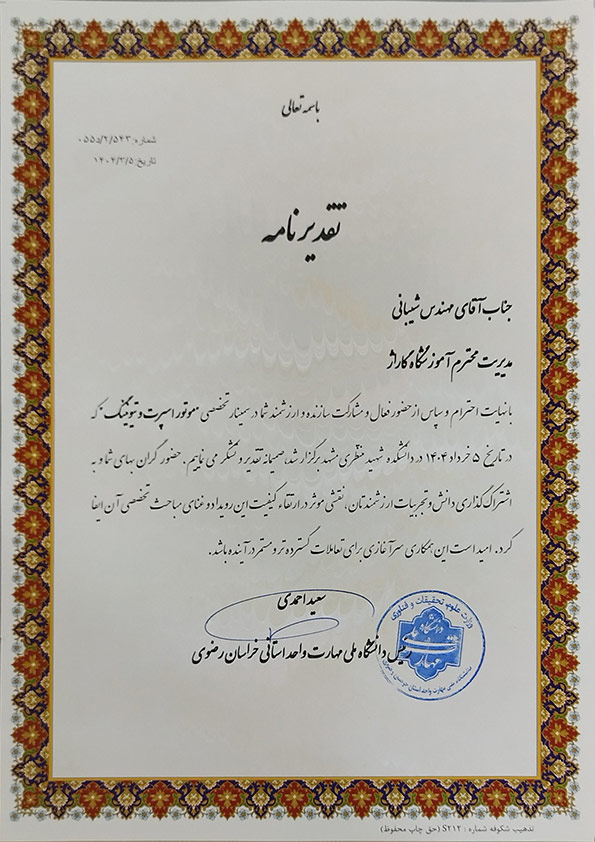 باسمه تعالی
شماره: ۰۵۵۵/۲/۵۴۳
تاریخ: ۱۴۰۴/۳/۵
تقدیرنامه
جناب آقای مهندس شیبانی
مدیریت محترم آموزشگاه گاراژ
با نهایت احترام و سپاس از حضور فعال و مشارکت سازنده و ارزشمند شما در سمینار تخصصی "موتور اسپرت و تیونینگ" که
در تاریخ ۵ خرداد ۱۴۰۴ در دانشکده شهید منتظری مشهد برگزار شد، صمیمانه تقدیر و تشکر می نماییم. حضور گران بهای شما و به
اشتراک گذاری دانش و تجربیات ارزشمندتان، نقشی موثر در ارتقاء کیفیت این رویداد و غنای مباحث تخصصی آن ایفا
کرد. امید است این همکاری سرآغازی برای تعاملات گسترده تر و مستمر در آینده باشد.
سعید احمدی
رییس دانشگاه ملی مهارت واحد استانی خراسان رضوی
وزارت علوم، تحقیقات و فناوری
دانشگاه ملی
مهارت
تذهیب شکوفه شماره : S۲۱۲ (حق چاپ محفوظ)